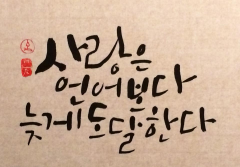 사랑은
언어보다
늦게 도달한다